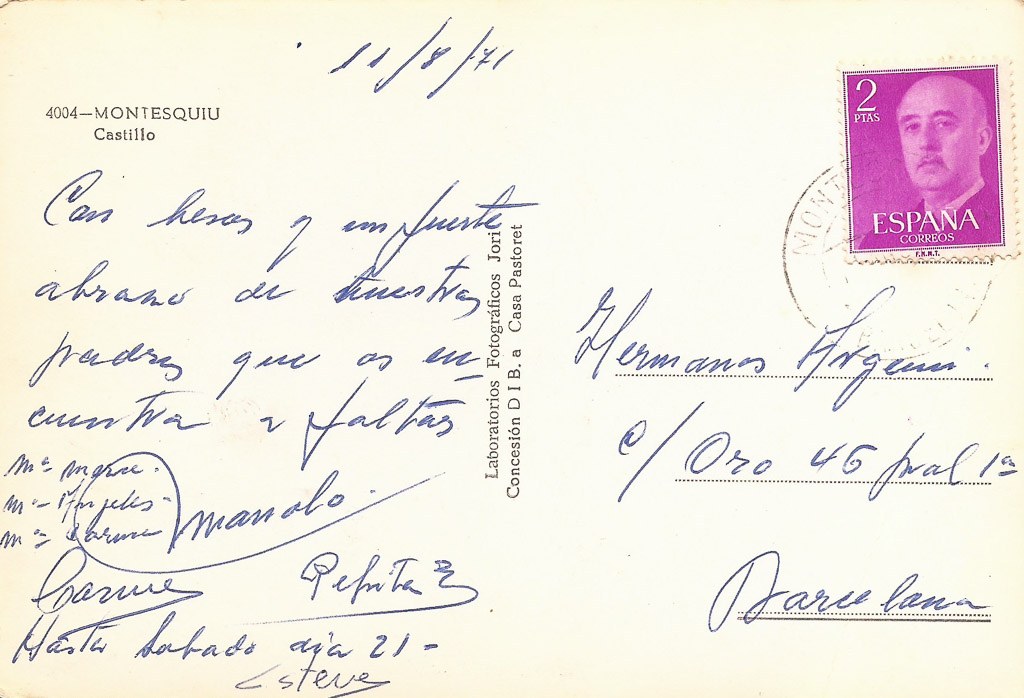 11/8/71
4004—MONTESQUIU
Castillo
Con besos y un fuerte
abrazo de nuestros
padres que os en-
cuentra a faltar
Mª
Mª Angeles
Mª Carme
Manolo
Carme Pepita
Hasta Sabado dia 21 -
Esteve
Laboratorios Fotográficos Jori
Concesión D I B. a Casa Pastoret
2
PTAS
ESPAÑA
CORREOS
F.N.M.T.
Hermanos Argemi.
c/ Oro 46 pral 1ª
Barcelona